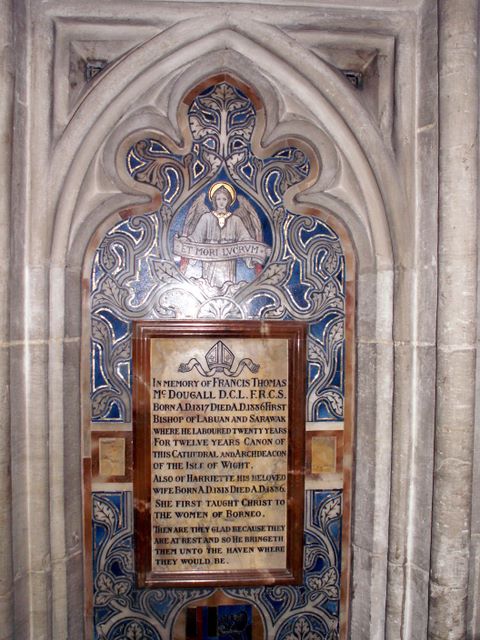 ET MORI LVCRVM
IN MEMORY OF FRANCIS THOMAS
McDOUGALL D.C.L. F.R.C.S.
BORN A.D. 1817 DIED A.D. 1886 FIRST
BISHOP OF LABUAN AND SARAWAK
WHERE HE LABOURED TWENTY YEARS
FOR TWELVE YEARS CANON OF
THIS CATHEDRAL AND ARCHDEACON
OF THE ISLE OF WIGHT.
ALSO OF HARRIETTE HIS BELOVED
WIFE BORN A.D. 1818 DIED A.D. 1886.
SHE FIRST TAUGHT CHRIST TO
THE WOMEN OF BORNEO.
THEN ARE THEY GLAD BECAUSE THEY
ARE AT REST AND SO HE BRINGETH
THEM UNTO THE HAVEN WHERE
THEY WOULD BE.